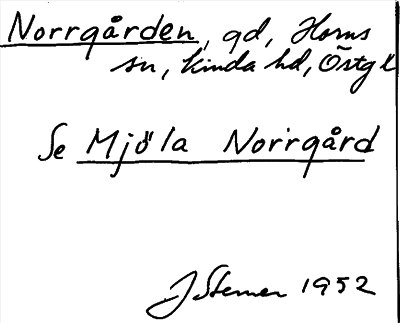 Norrgården, gd, Horns
sn, Kinda hd, Östg l
Se Mjöla Norrgård
J Sterner 1952